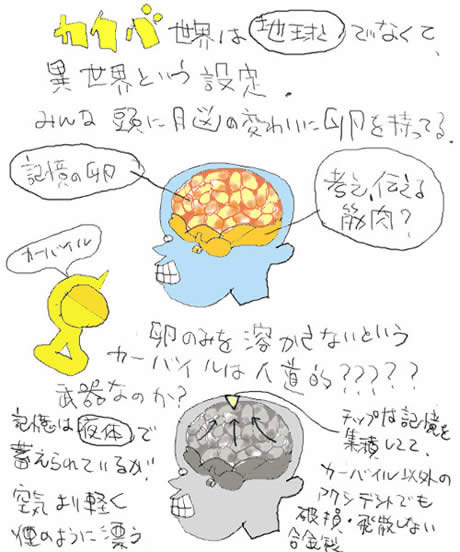 カイバ世界は地球とでなくて、
異世界という設定.
みんな頭に脳の変わいに卵を持ってる.
記憶の卵
考え、伝える
筋肉?
カーバイル
卵のみを溶かさないという
カーバイルは人道的?????
武器なのか?
記憶は液体で
蓄えられているが!
空気より軽く
煙のように漂う
チップな記憶を
集積してて.
カーバイル以外の
アクシデントでも
破損・飛散しない
合金製